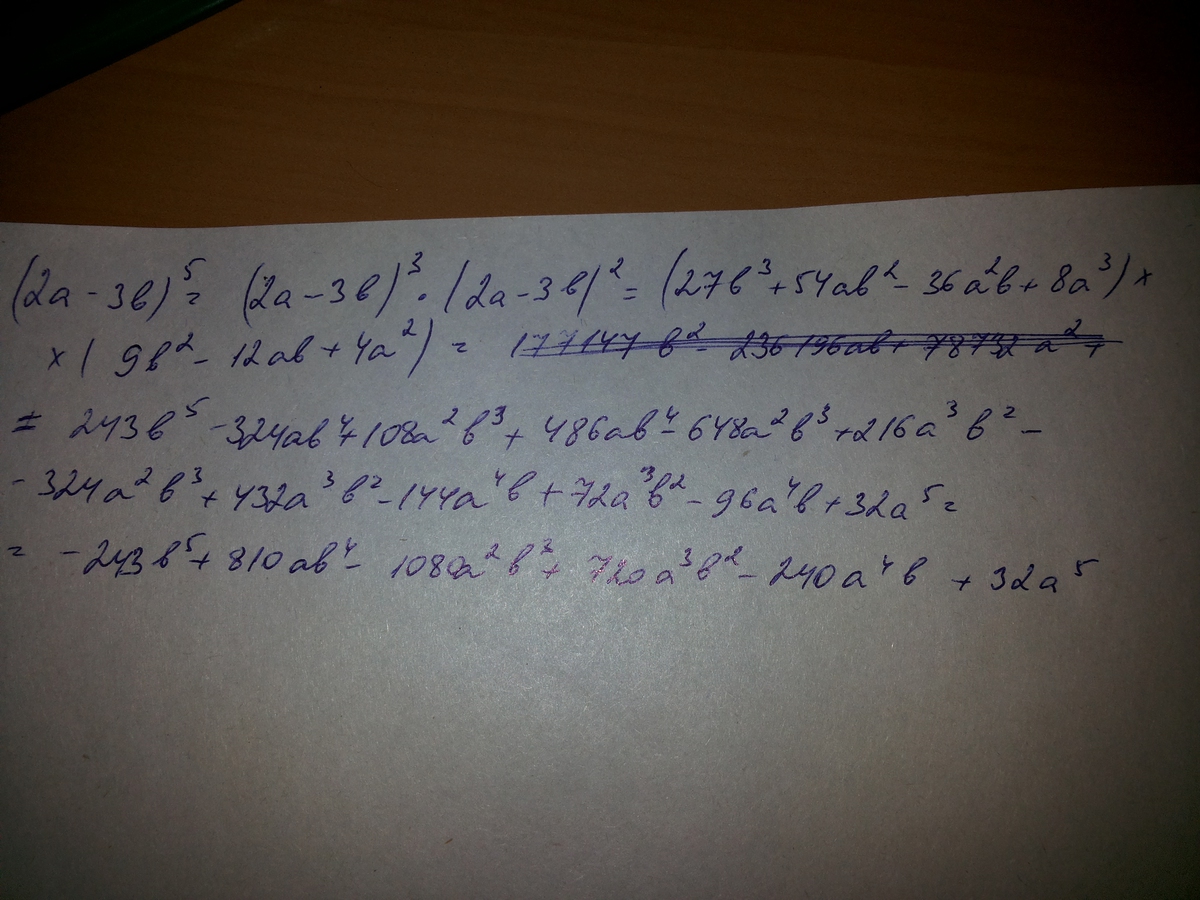 (2a - 3b)⁵ = (2a - 3b)³ · (2a - 3b)² = (27b³ + 54ab² - 36a²b + 8a³) ×
× (9b² - 12ab + 4a²) = 177147b² - 236196ab + 78732a² +
= 243b⁵ - 324ab⁴ + 108a²b³ + 486ab⁴ - 648a²b³ + 216a³b² -
- 324a²b³ + 432a³b² - 144a⁴b + 72a³b² - 96a⁴b + 32a⁵ =
= - 243b⁵ + 810ab⁴ - 1080a²b³ + 720a³b² - 240a⁴b + 32a⁵